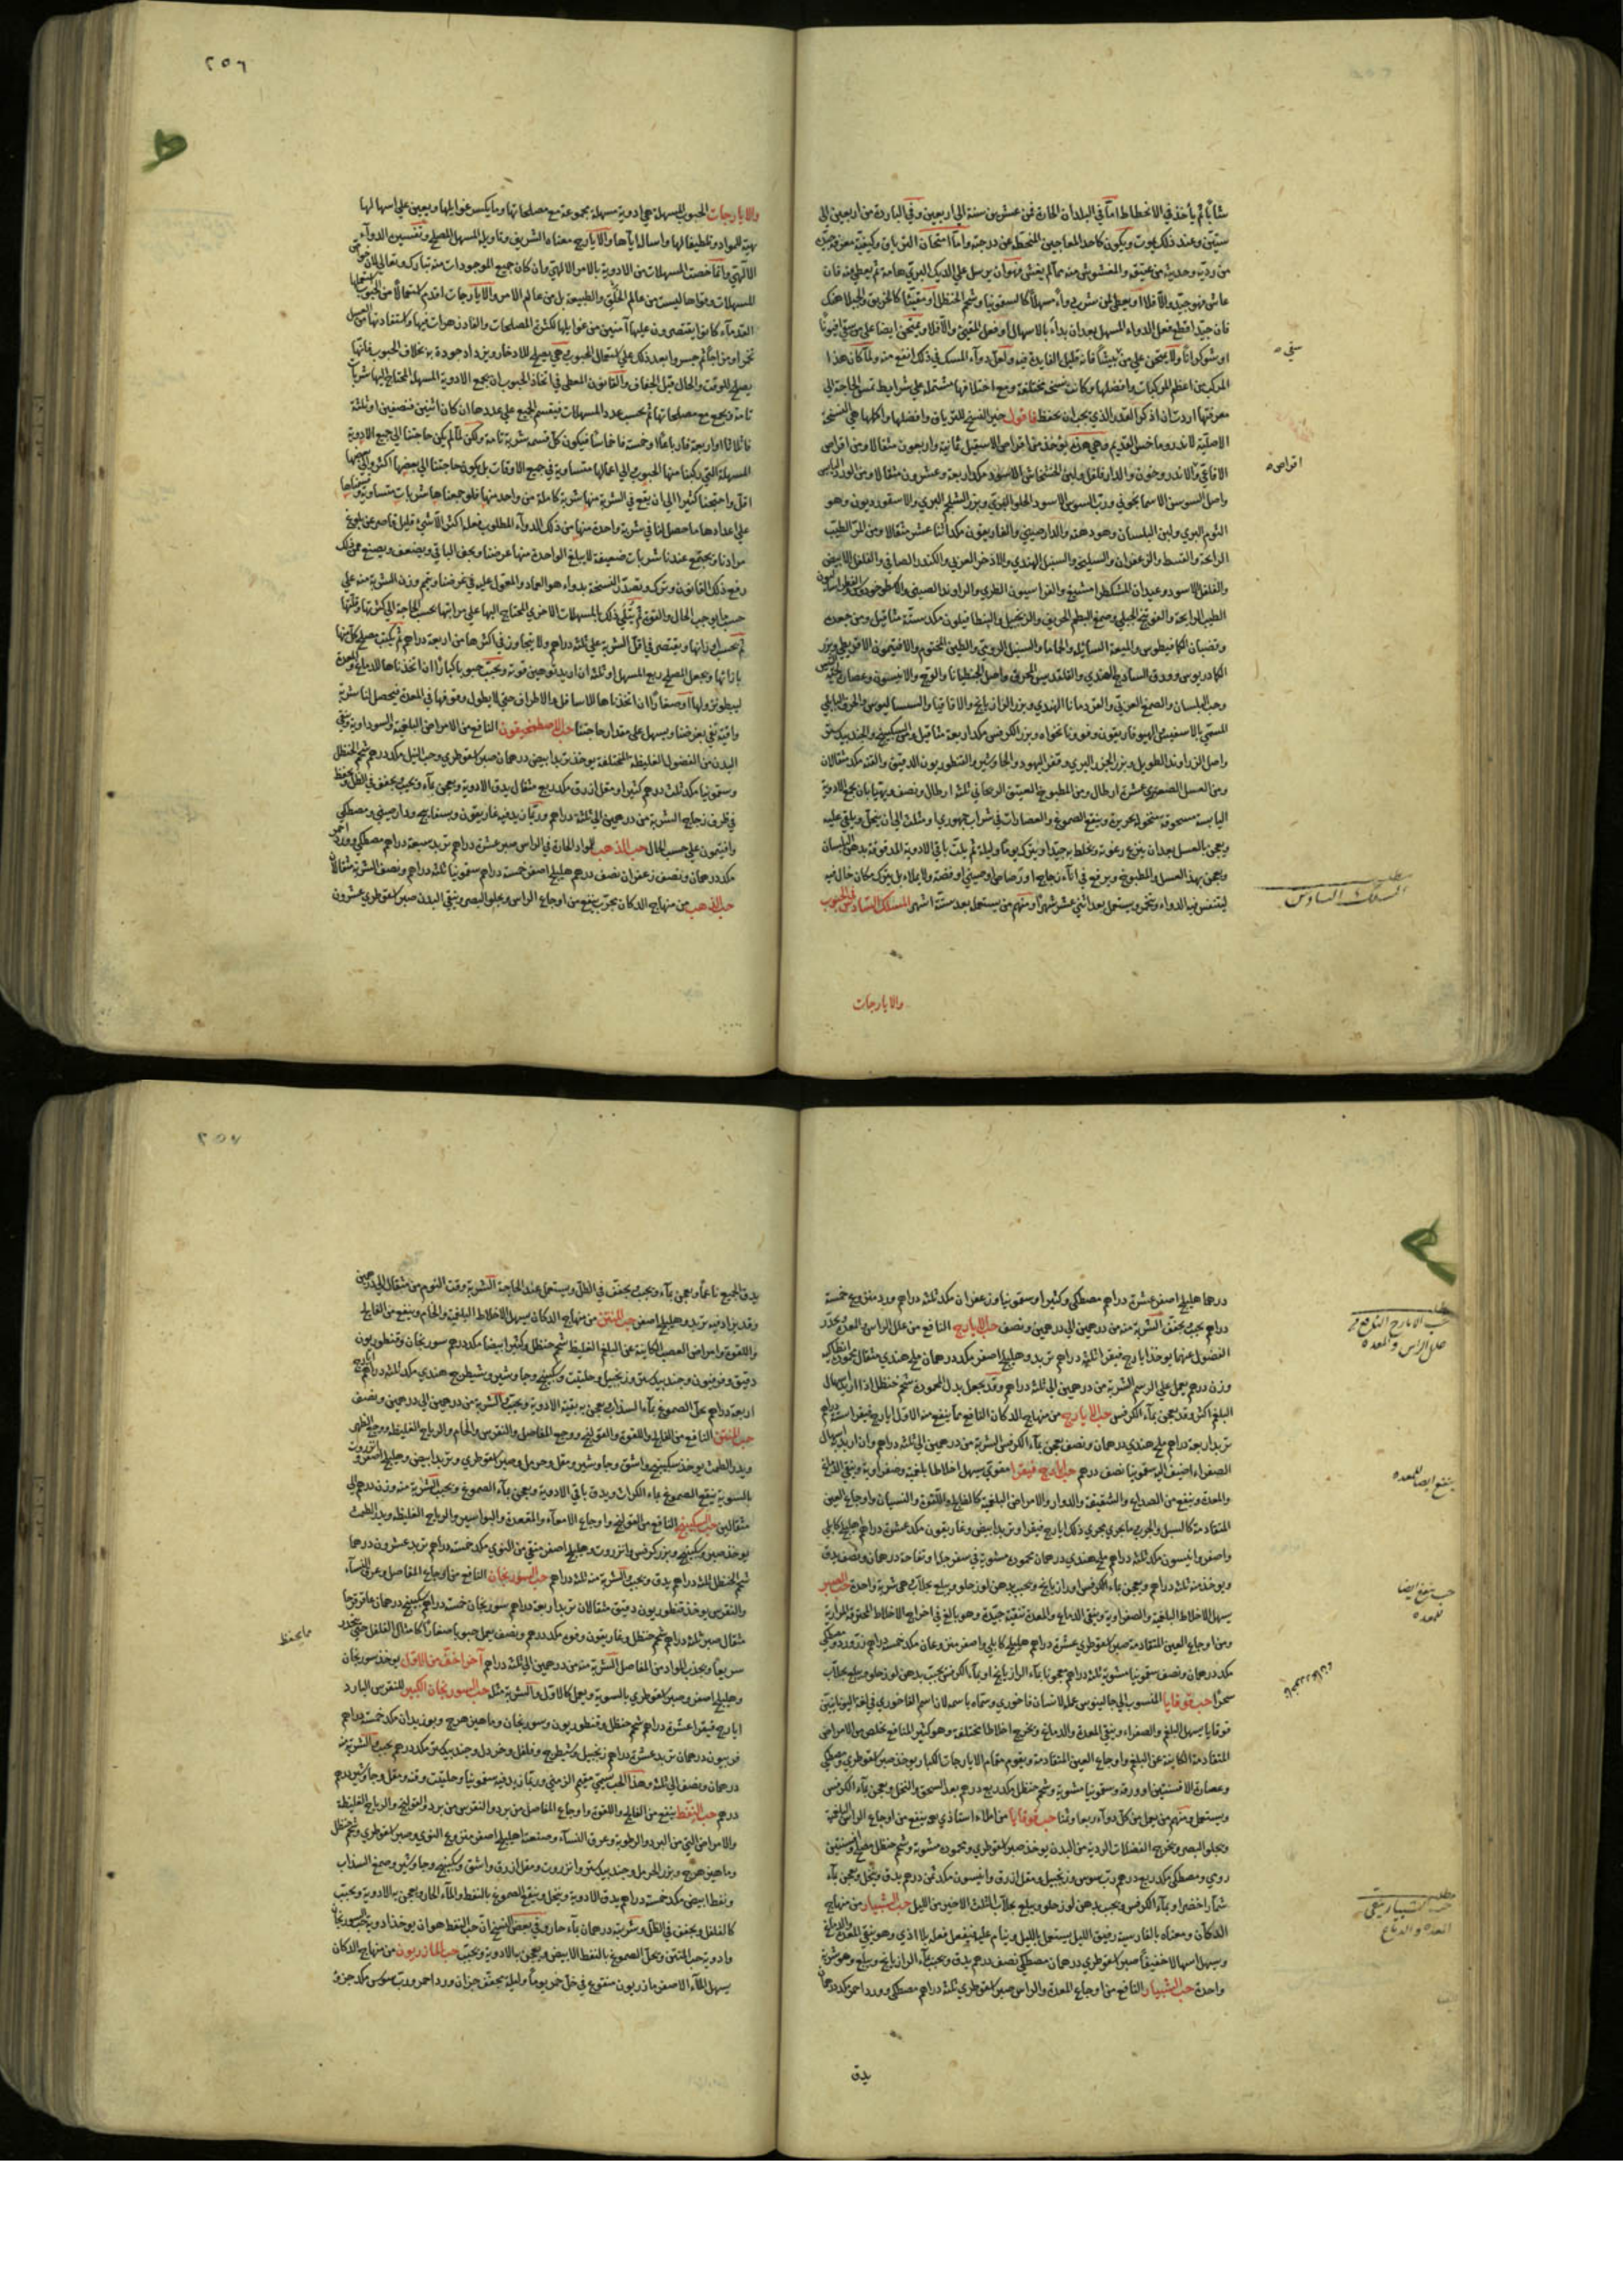 شابًا ثم يأخذ في الانحطاط اما في البلدان الحارة فمن عشرين سنة الى اربعين وفي الباردة من اربعين الى
ستين وعند ذلك يموت ويكون كاحد المعاجين المنحطة عن درجته واما امتحان الترياق وكيفية معرفة جيده
من رديه وحديثه من عتيقه والمغشوش منه مما لم يغش فهو ان يرسل على الديك البري هامة ثم يعطى منه فان
عاش فهو جيد والا فلا او يعطى لمن شرب دواء مسهلا كالسقمونيا وشحم الحنظل او مقيئا كالخربق والجبلاهنك
فان جيده يقطع فعل الدواء المسهل بعد ان بدأ بالاسهال او فعل المقيئ والا فلا ويمتحن ايضا على من سقي افيونا
او شوكرانا ولا يمتحن على من بيشا فانه قليل الفايدة فيه ولعل دواء المسك في ذلك انفع منه ولما كان هذا
المركب من اعظم المركبات وافضلها وكانت نسخه مختلفة ومع اختلافها مشتملة على شرايط تمس الحاجة الى
معرفتها اردت ان اذكر القدر الذي يجب ان يحفظ فاقول خير النسخ للترياق وافضلها واكملها هي النسخة
الاصلية لاندروماخس القديم وهي هذه يؤخذ من اقراص الاسقيل ثمانية واربعون مثقالا ومن اقراص
الافاعي والاندروخون والدار فلفل ولبن الخشخاش الاسود مكد اربعة وعشرون مثقالا ومن الورد اليابس
واصل السوسن الاسمانجوني ورب السوس الاسود الحلو البزي وبزر الشلجم البري والاسقورديون وهو
الثوم البري ولبن البلسان وهو دهنه والدارصيني والغاريقون مكد اثنا عشر مثقالا ومن المر الطيب
الرائحة والقسط والزعفران والسليخة والسنبل الهندي والاذخر العربي والكندر الصافي والفلفل الابيض
والفلفل الاسود وعيدان المشكطرا مشيع والفراسيون الطري والراوند الصيني والاسطوخودس
الطيب الرايحة والفوتنج الجبلي وصمغ البطم الحريف والزنجبيل والبنطافيلون مكد ستة مثاقيل ومن جعدة
وقضبان الكمافيطوس والميعة السائلة والحماما والسنبل الرومي والطين المختوم والافيتمون الاقريطي وبزر
الكمادريوس وورق السادج الهندي والقلقديس المحرق واصل الجنطيانا والوج والانيسون وعصارة
وحب البلسان والصمغ العربي والقردمانا الهندي وبزر الرازيانج والاقاقيا والسساليوس والحرف البابلي
المسمى بالاسفيش الهيوفاريقون وفو ونانخواه وبزر الكرفس مكد اربعة مثاقيل ومن السكبينج والجندبيدستر
واصل الزراوند الطويل وبزر الجزر البري وقفر اليهود والجاوشير والقنطوريون الدقيق والقنه مكد مثقالان
ومن العسل الصعتري عشرة ارطال ومن المطبوخ العتيق الريحاني ثلثة ارطال ونصف ويهيأ بان يجمع الادوية
اليابسة مسحوقة منخولة بحريرة وينقع الصموغ والعصارات في شراب جمهوري او مثلث الى ان ينحل ويلقى عليه
ويعجن بالعسل بعد ان ينزع رغوته ويخلط به جيدا ويترك يوما وليلة ثم يلت باقي الادوية المدقوقة بدهن البلسان
ويعجن بهذا العسل والمطبوخ ويرفع في اناء زجاج او رصاص او صيني او فضة ولا يملاء بل يترك مكان خال فيه
ليتنفس فيه الدواء ويتخر ويستعمل بعد اثني عشر شهرا ومنهم من يستعمله بعد ستة اشهر المسلك السادس في الحبوب
والايارجات
سقي
اقراص
مطلب
المسلك السادس
٢٥٦
والايارجات الحبوب المسهلة هي ادوية مسهلة مجموعة مع مصلحاتها وما يكسر غوايلها ويعين على اسهالها
تهيئة المواد وتلطيفا لها واسالة اياها والايارج معناه الشريف وتاويله المسهل المصلح وتفسيره الدواء
الالهي وانما خصت المسهلات من الادوية بالامر الالهي وان كان جميع الموجودات منه تبارك وتعالى لان
المسهلات وقواها ليست من عالم الخلق والطبيعة بل من عالم الامر والايارجات اقدم استعمالا من الحبوب
القدماء كانوا يقتصرون عليها آمنين من غوايلها لكثرة المصلحات والفادزهرات فيها واستفادتها من العسل
تخمرا ومزاجا ثم جسروا بعد ذلك على استعمال الحبوب هي يصلح للادخار ويزداد جودة به بخلاف الحبوب فانها
يصلح للوقت والحال قبل الجفاف والقانون المعطى في اتخاذ الحبوب ان يجمع الادوية المسهلة المحتاج اليها شربات
تامة ويجمع مع مصلحاتها ثم يحسب عدد المسهلات فيقسم الجميع على عددها ان كان اثنين فنصفين او ثلثة
فاثلاثا او اربعة فارباعا او خمسة فاخماسا فيكون كل قسم شربة تامة ولكن لما لم يكن حاجتنا الى جميع الادوية
المسهلة التي ركبنا منها الحبوب الى اعمالها متساوية في جميع الاوقات بل يكون حاجتنا الى بعضها اكثر والى بعضها
اقل واحتجنا كثيرا الى ان يقع في الشربة منها شربة كاملة من واحد منها فلو جمعناها شربات متساوية وقسمناها
على اعدادها ما حصل لنا في شربة واحدة منها من ذلك الدواء المطلوب فعله اكثر الا شيء قليل قاصر عن بلوغ
مرادنا ويجتمع عندنا شربات ضعيفة لا يبلغ الواحدة منها غرضنا ويجف الباقي ويضعف ويصنع عن ذلك
رفع ذلك القانون وترك وتصدر النسخة بدواء هو العماد والمعول عليه في غرضنا ويتم وزن الشربة منه على
حسب ما يوجب الحال والقوة ثم يتلى ذلك بالمسهلات الاخرى المحتاج اليها على مراتبها بحسب الحاجة الى كثرتها وقلتها
ثم يحسب اوزانها ويقتصر في اقل الشربة على ثلثة دراهم ولا يتجاوز في اكثرها من اربعة دراهم ثم يكتب مصلح كل منها
بازائها ويجعل المصلح ربع المسهل او ثلثه ان اريد توهين قوته ويحبب حبوبا كبارا ان اتخذناها للدماغ والمعدة
ليبطئ نزولها او صغارا ان اتخذناها للاسافل والاطراف حتى لا يطول وقوفها في المعدة فيحصل لنا شربة
وافية تفي بغرضنا ويسهل على مقدار حاجتنا حب الاصطمخيقون النافع من الامراض البلغمية والسوداوية وينقي
البدن من الفضول الغليظة المختلفة يؤخذ تربد ابيض درهمان صبر اسقوطري وحب النيل مكد درهم شحم الحنظل
وسقمونيا مكد ثلث درهم كثيرا ومقل ازرق مكد ربع مثقال يدق الادوية ويعجن بماء ويحبب يجفف في الظل ويحفظ
في ظرف زجاج الشربة من درهمين الى ثلثة دراهم وربما زيد فيه غاريقون وبسفايج ودارصيني ومصطكي
وافتيمون على حسب الحال حب الذهب للمواد الحارة في الراس صبر عشرة دراهم تربد سبعة دراهم مصطكي وورد احمر
مكد درهمان ونصف زعفران نصف درهم هليلج اصفر خمسة دراهم سقمونيا ثلثة دراهم ونصف الشربة مثقالان
حب الذهب من منهاج الدكان مجرب ينفع من اوجاع الراس ويجلو البصر وينقي البدن صبر اسقوطري عشرون
درهما هليلج اصفر عشرة دراهم مصطكي وكثيرا وسقمونيا وزعفران مكد ثلثة دراهم ورد منزوع خمسة
دراهم يحبب يجفف الشربة منه من درهمين الى درهمين ونصف حب الايارج النافع من علل الراس والمعدة ويحدر
الفضول عنهما يؤخذ ايارج فيقرا ثلثة دراهم تربد وهليلج اصفر مكد درهمان ملح هندي مثقال
وزن درهم يعمل على الرسم الشربة من درهمين الى ثلثة دراهم وقد يجعل بدل المحمودة شحم حنظل اذا اريد اسهال
البلغم اكثر وقد يعجن بماء الكرفس حب الايارج من منهاج الدكان النافع مما ينفع منه الاول ايارج فيقرا ستة دراهم
تربد اربعة دراهم ملح هندي درهمان ونصف يعجن بماء الكرفس الشربة من درهمين الى ثلثة دراهم وان اريد اسهال
الصفراء اضيف اليه سقمونيا نصف درهم حب الايارج فيقرا مقوى يسهل اخلاطا بلغمية وصفراوية وينقي
والمعدة وينفع من الصداع والشقيقة والدوار والامراض البلغمية كالفالج واللقوة والنسيان واوجاع العين
المتقادمة كالسبل والجرب ما يجري مجرى ذلك ايارج فيقرا وتربد ابيض وغاريقون مكد عشرة دراهم هليلج كابلي
واصفر وانيسون مكد ثلثة دراهم ملح هندي درهمان محمودة مشوية في سفرجلة او تفاحة درهمان ونصف يدق
ويؤخذ منه ثلثة دراهم ويعجن بماء الكرفس او رازيانج ويحبب بدهن لوز حلو ويبلع بجلاب هي شربة واحدة حب الصبر
يسهل الاخلاط البلغمية والصفراوية وينقي الدماغ والمعدة تنقية جيدة وهو بالغ في اخراج الاخلاط المحترقة المرارية
ومن اوجاع العين المتقادمة صبر اسقوطري عشرة دراهم هليلج كابلي واصفر منزوعان مكد خمسة دراهم زر ورد ومصطكي
مكد درهمان ونصف سقمونيا مشوية ثلثة دراهم معجونا بماء الرازيانج او بماء الكرفس يحبب بدهن لوز حلو ويبلع بجلاب
سحرا حب قوقايا المنسوب الى جالينوس عمله لانسان فاخوري وسماه باسمه لان اسم الفاخوري في لغة اليونانيين
قوقايا يسهل البلغم والصفراء وينقي المعدة والدماغ ويخرج اخلاطا مختلفة وهو كثير المنافع يخلص من الامراض
المتقادمة الكاينة عن البلغم واوجاع العين المتقادمة ويقوم مقام الايارجات الكبار يؤخذ صبر اسقوطري ومصطكي
وعصارة الافسنتين او ورقه وسقمونيا مشوية وشحم حنظل مكد ربع درهم بعد السحق والنخل ويعجن بماء الكرفس
ويستعمل ومنهم من يعمل من كل دواء ربعا وثمنا حب قوقايا من املاء استاذي هو ينفع من اوجاع الراس البلغمية
ويجلو البصر ويخرج الفضلات الردية من البدن يؤخذ صبر اسقوطري ومحمودة مشوية وشحم حنظل مصلح افسنتين
رومي ومصطكي مكد ربع درهم رب سوس وزنجبيل ومقل ازرق وانيسون مكد ثمن درهم يدق وينخل ويعجن بماء
شمار اخضر او بماء الكرفس ويحبب بدهن لوز حلو ويبلع بجلاب الثلث الاخير من الليل حب الشبيار من منهاج
الدكان ومعناه بالفارسية رفيق الليل يستعمل بالليل وينام عليه فيفعل فعله بلا اذى وهو ينقي المعدة والدماغ
ويسهل اسهالا خفيفا صبر اسقوطري درهمان مصطكي نصف درهم يدق ويحبب بماء الرازيانج ويبلع وهو شربة
واحدة حب الشبيار النافع من اوجاع المعدة والراس صبر اسقوطري ثلثة دراهم مصطكي وورد احمر مكد درهمان
يدق
مطلب
حب الايارج النافع من
علل الراس والمعدة
ينفع ايضا للمعدة
حب ينفع ايضا
للمعدة
مطلب
حب الشبيار ينقي
المعدة والدماغ
٢٥٧
يدق الجميع ناعما ويعجن بماء ويحبب يجفف في الظل ويستعمل عند الحاجة الشربة وقت النوم من مثقال الى درهمين
وقد يزاد فيه تربد وهليلج اصفر حب المنتن من منهاج الدكان يسهل الاخلاط البلغمية والخام وينفع من الفالج
واللقوة وامراض العصب الكاينة عن البلغم الغليظ شحم حنظل وكثيرا بيضا مكد درهم سورنجان وقنطوريون
دقيق وفربيون وجندبيدستر وزنجبيل وحلتيت وسكبينج وجاوشير وشيطرج هندي مكد ثلثة دراهم ايارج
اربعة دراهم يحل الصموغ بماء السذاب يعجن به بقية الادوية ويحبب والشربة من درهمين الى درهمين ونصف
حب المنتن النافع من الفالج واللقوة والقولنج ووجع المفاصل والنقرس والخام والرياح الغليظة ووجع الظهر
ويدر الطمث يؤخذ سكبينج واشق وجاوشير ومقل وحرمل وصبر اسقوطري وتربد ابيض وهليلج اصفر وانزروت
بالسوية ينقع الصموغ بماء الكراث ويدق باقي الادوية ويعجن بماء الصموغ ويحبب الشربة منه وزن درهم الى
مثقالين حب السكبينج النافع من القولنج واوجاع الامعاء والمقعدة والبواسير والرياح الغليظة ويدر الطمث
يؤخذ صبر وسكبينج وبزر كرفس وانزروت وهليلج اصفر منقى من النوى مكد خمسة دراهم تربد عشرون درهما
شحم الحنظل ثلثة دراهم يدق ويحبب والشربة منه ثلثة دراهم حب السورنجان النافع من اوجاع المفاصل وعرق النساء
والنقرس يؤخذ قنطوريون دقيق مثقالان تربد اربعة دراهم سورنجان خمسة دراهم سكبينج درهمان عاقرقرحا
مثقال صبر ثلثة دراهم شحم حنظل وغاريقون وفوه مكد درهم ونصف يعمل حبوبا صغارا كامثال الفلفل حتى ينحدر
سريعا ويجذب المواد من المفاصل الشربة منه من درهمين الى ثلثة دراهم آخر اخف من الاول يؤخذ سورنجان
وهليلج اصفر وصبر اسقوطري بالسوية ويعمل كالاول والشربة مثله حب السورنجان الكبير للنقرس البارد
ايارج فيقرا عشرة دراهم شحم حنظل وقنطوريون وسورنجان وماهيزهرج وبوزيدان مكد خمسة دراهم
فربيون درهمان تربد عشرة دراهم زنجبيل وشيطرج وفلفل وخردل وجندبيدستر مكد درهم يحبب الشربة منه
درهمان ونصف الى ثلثة وهذا الحب يسمى مقيم الزمنى وربما زيد فيه سقمونيا وحلتيت وقنه ومقل وجاوشير درهم
درهم حب النفط ينفع من الفالج واللقوة واوجاع المفاصل من برد والنقرس من برد والقولنج والرياح الغليظة
والامراض التي من البرد والرطوبة وعرق النساء وصنعته هليلج اصفر منزوع النوى وصبر اسقوطري وشحم حنظل
وماهيزهرج وبزر الحرمل وجندبيدستر وانزروت ومقل ازرق واشق وسكبينج وجاوشير وصمغ السذاب
ونفط ابيض مكد خمسة دراهم يدق الادوية وينخل وينقع الصموغ بالنفط والماء الحار ويعجن به الادوية ويحبب
كالفلفل ويجفف في الظل وشربته درهمان بماء حار وفي بعض النسخ ان حب النفط هو ان يؤخذ ادوية حب السورنجان
وادوية حب المنتن ويحل الصموغ بالنفط الابيض ويعجن به الادوية ويحبب حب المازريون من منهاج الدكان
يسهل الماء الاصفر مازريون منقوع في خل خمر يوما وليلة مجفف جزان ورد احمر ورب سوس مكد جزو
مما يحفظ